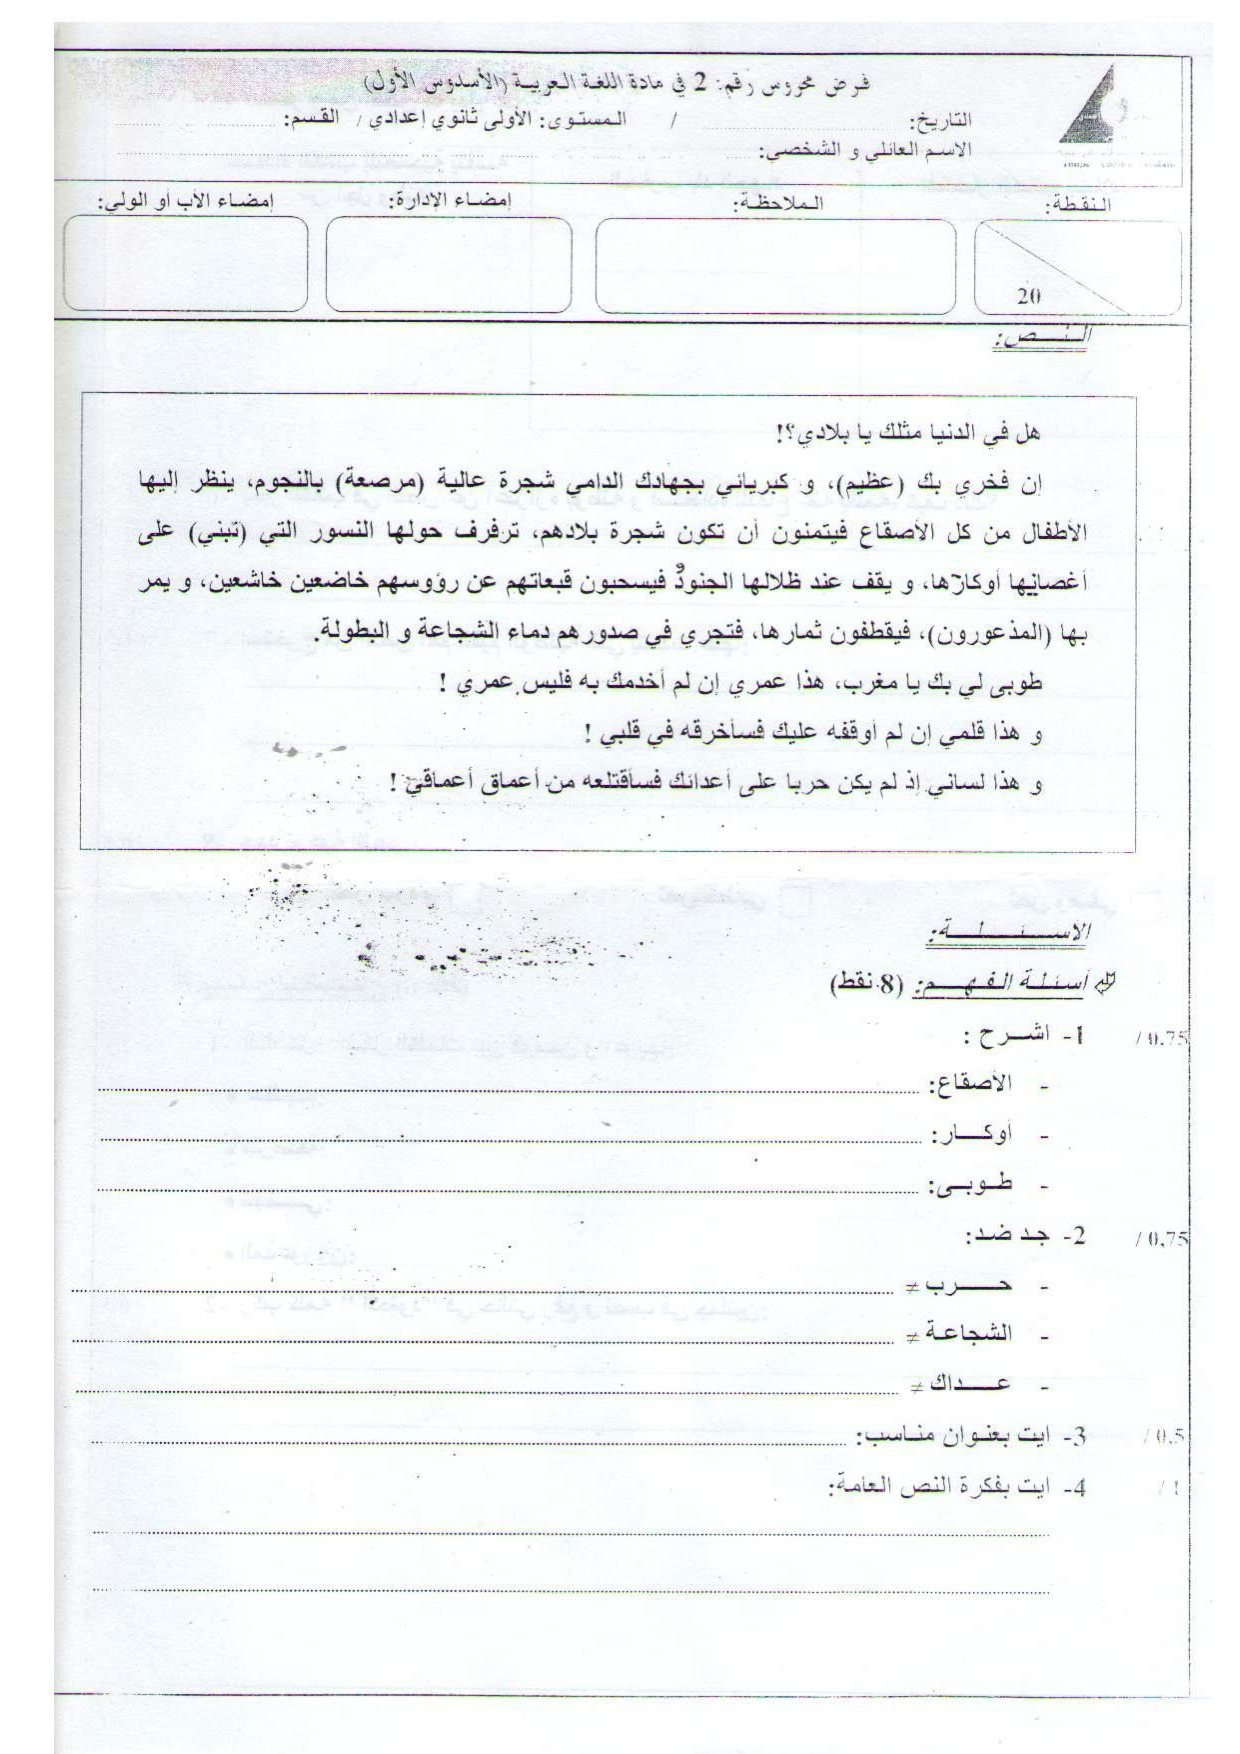 فرض محروس رقم: 2 في مادة اللغة العربية (الأسدوس الأول)
التاريخ: / المستوى: الأولى ثانوي إعدادي / القسم:
الاسم العائلي و الشخصي:
النقطة: الملاحظة: إمضاء الإدارة: إمضاء الأب أو الولي:
20
النص:
هل في الدنيا مثلك يا بلادي؟!
إن فخري بك (عظيم)، و كبريائي بجهادك الدامي شجرة عالية (مرصعة) بالنجوم، ينظر إليها
الأطفال من كل الأصقاع فيتمنون أن تكون شجرة بلادهم، ترفرف حولها النسور التي (تبني) على
أغصانها أوكارها، و يقف عند ظلالها الجنودُ فيسحبون قبعاتهم عن رؤوسهم خاضعين خاشعين، و يمر
بها (المذعورون)، فيقطفون ثمارها، فتجري في صدورهم دماء الشجاعة و البطولة.
طوبى لي بك يا مغرب، هذا عمري إن لم أخدمك به فليس عمري !
و هذا قلمي إن لم أوقفه عليك فسأخرقه في قلبي !
و هذا لساني إذ لم يكن حربا على أعدائك فسأقتلعه من أعماق أعماقي !
الاسئلة:
أسئلة الفهم: (8 نقط)
1- اشرح : / 0.75
- الأصقاع:
- أوكار:
- طوبى:
2- جد ضد: / 0,75
- حرب ≠
- الشجاعة ≠
- عداك ≠
3- ايت بعنوان مناسب: / 0,5
4- ايت بفكرة النص العامة: / 1